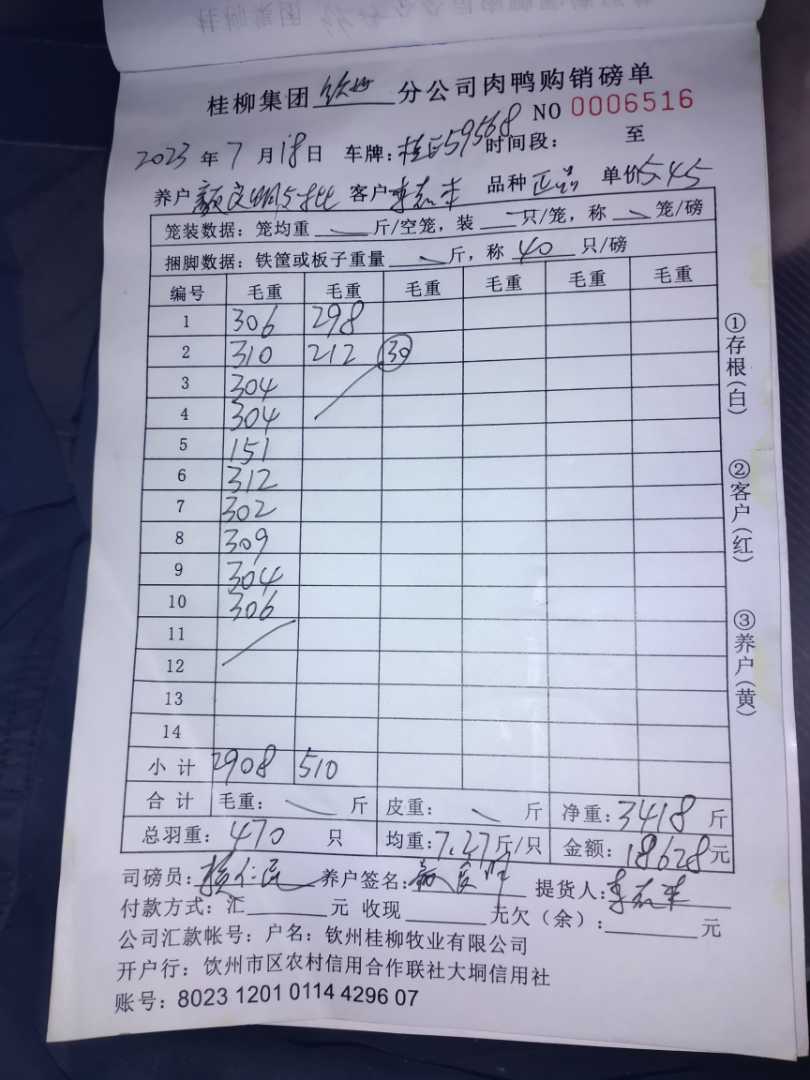 桂柳集团 钦州 分公司肉鸭购销磅单
NO 0006516
2023 年 7 月 18 日 车牌: 桂E59568 时间段: 至
养户 客户 品种 正品 单价 5.45
笼装数据: 笼均重 斤/空笼, 装 只/笼, 称 笼/磅
捆脚数据: 铁筐或板子重量 斤, 称 40 只/磅
编号 毛重 毛重 毛重 毛重 毛重 毛重
1 306 298
2 310 212 30
3 304
4 304
5 151
6 312
7 302
8 309
9 304
10 306
11
12
13
14
小计 2908 510
合计 毛重: 斤 皮重: 斤 净重: 3418 斤
总羽重: 470 只 均重: 7.27 斤/只 金额: 18628 元
司磅员: 养户签名: 提货人:
付款方式: 汇 元 收现 元欠(余): 元
公司汇款帐号: 户名: 钦州桂柳牧业有限公司
开户行: 饮州市区农村信用合作联社大垌信用社
账号: 8023 1201 0114 4296 07
①存根(白)
②客户(红)
③养户(黄)